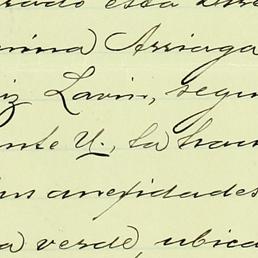 rado esta
nina Arriaga
iz Lavin, segu
nte U, la
anexidades
a verde, ubica